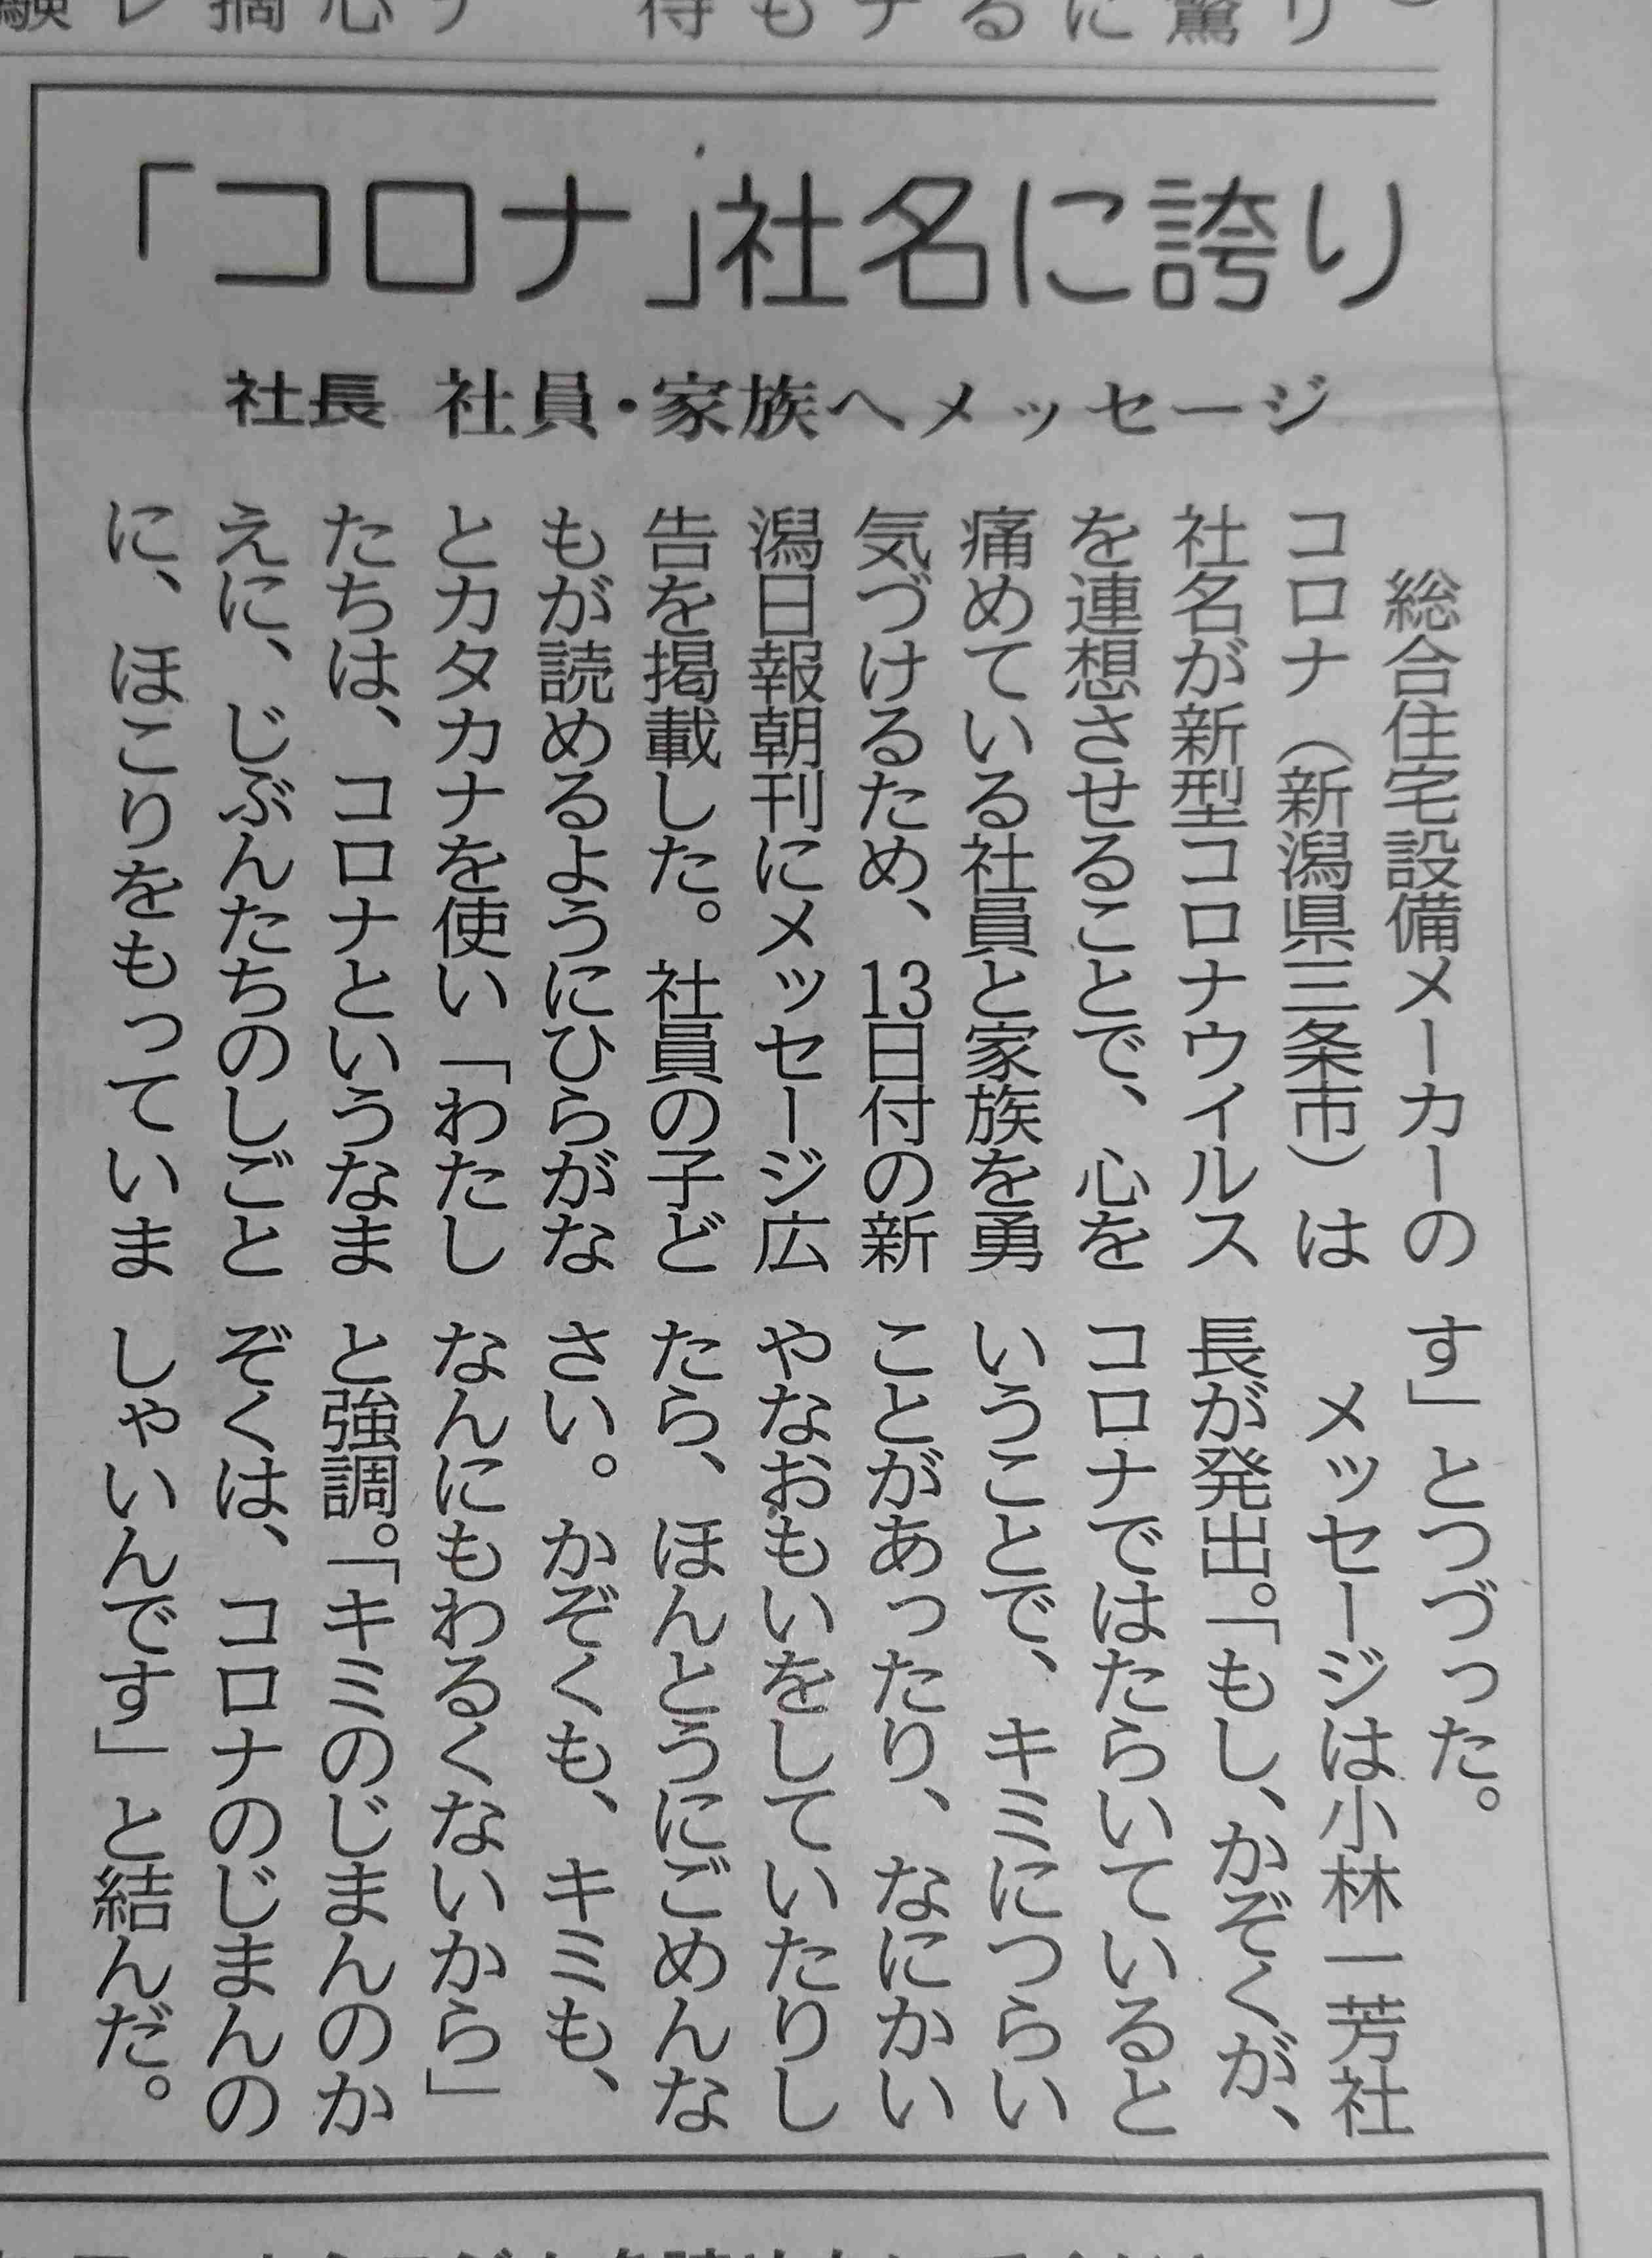 「コロナ」社名に誇り
社長 社員・家族へメッセージ
総合住宅設備メーカーの
コロナ（新潟県三条市）は
社名が新型コロナウイルス
を連想させることで、心を
痛めている社員と家族を勇
気づけるため、13日付の新
潟日報朝刊にメッセージ広
告を掲載した。社員の子ど
もが読めるようにひらがな
とカタカナを使い「わたし
たちは、コロナというなま
えに、じぶんたちのしごと
に、ほこりをもっていま
す」とつづった。
メッセージは小林一芳社
長が発出。「もし、かぞくが、
コロナではたらいていると
いうことで、キミにつらい
ことがあったり、なにかい
やなおもいをしていたりし
たら、ほんとうにごめんな
さい。かぞくも、キミも、
なんにもわるくないから」
と強調。「キミのじまんのか
ぞくは、コロナのじまんの
しゃいんです」と結んだ。